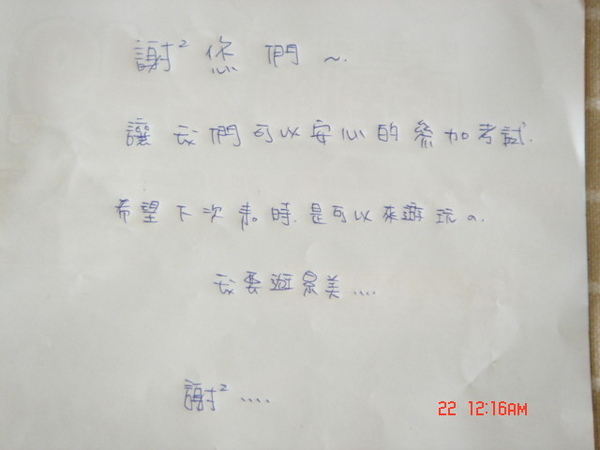 謝² 您 們 ~.
讓 我 們 可 以 安 心 的 參 加 考 試.
希 望 下 次 來 時, 是 可 以 來 遊 玩 の.
我 要 遊 景 美 ....
謝² ....
22 12:16AM